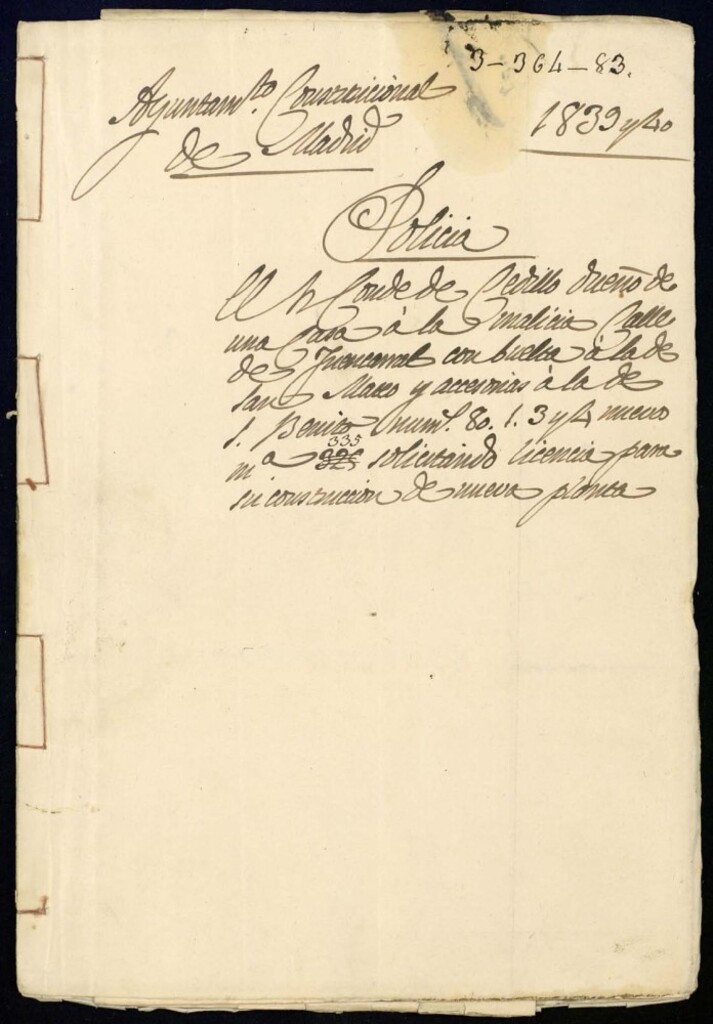 3-364-83.
Ayuntamto. Constitucional
de Madrid
1839 y 40
Policia
El Sr Conde de Cedillo dueño de
una Casa á la malicia Calle
de Fuencarral con buelta á la de
San Mateo y accesorias á la de
S. Benito num.s 80. 1. 3 y 4 nuevo
335
mª 325 solicitando licencia para
su construccion de nueva planta